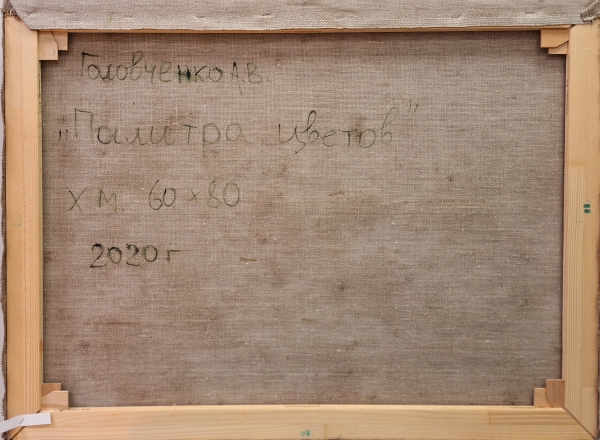 Головченко А.В.
„Палитра цветов"
х м. 60 x 80
2020 г